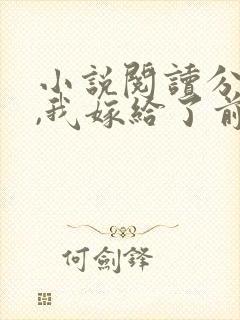 小說閱讀分
,我嫁給了前
何劍鋒